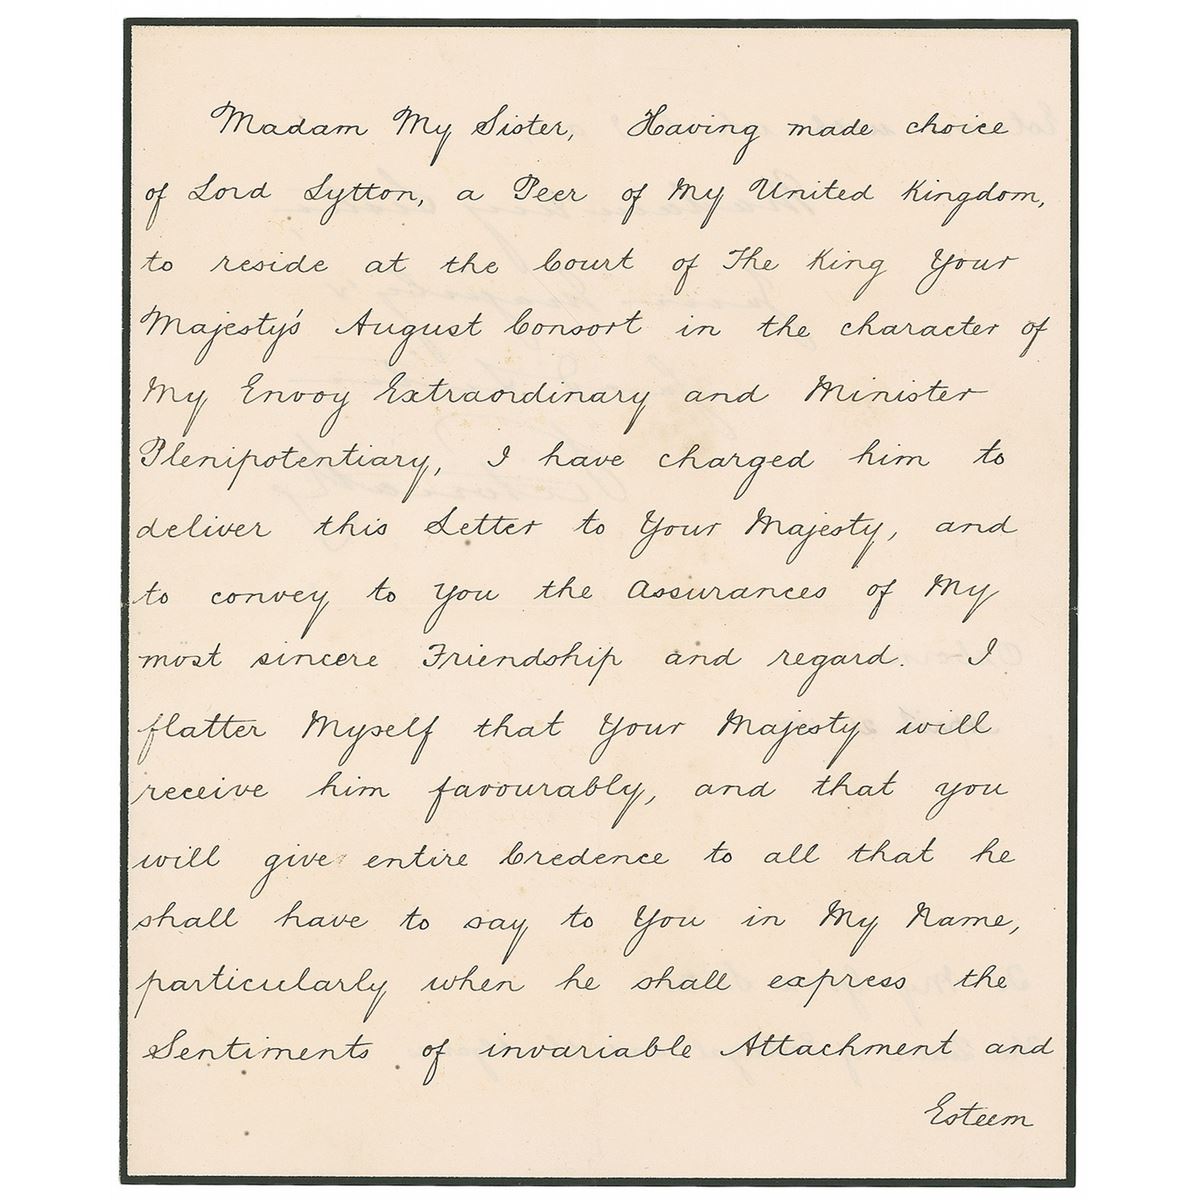 Madam My Sister, Having made choice
of Lord Lytton, a Peer of My United Kingdom,
to reside at the Court of The King Your
Majesty's August Consort in the character of
My Envoy Extraordinary and Minister
Plenipotentiary, I have charged him to
deliver this Letter to Your Majesty, and
to convey to You the assurances of My
most sincere Friendship and regard. I
flatter Myself that Your Majesty will
receive him favourably, and that you
will give entire Credence to all that he
shall have to say to You in My Name,
particularly when he shall express the
Sentiments of invariable Attachment and
Esteem